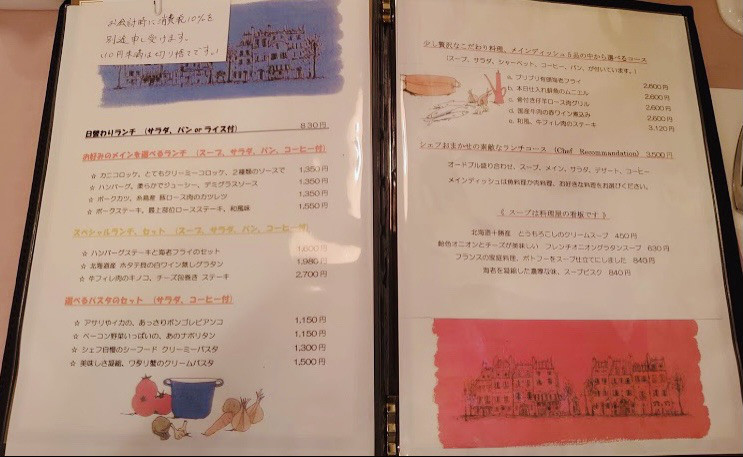 お会計時に消費税10%を
別途申し受けます。
(10円未満は切り捨てです。)
日替わりランチ (サラダ、パン or ライス付) 830円
お好みのメインを選べるランチ (スープ、サラダ、パン、コーヒー付)
☆ カニコロッケ、とてもクリーミーコロッケ、2種類のソースで 1,350円
☆ ハンバーグ、柔らかでジューシー、デミグラスソース 1,350円
☆ ポークカツ、糸島産 豚ロース肉のカツレツ 1,350円
☆ ポークステーキ、最上部位ロースステーキ、和風味 1,550円
スペシャルランチ、セット (スープ、サラダ、パン、コーヒー付)
☆ ハンバーグステーキと海老フライのセット 1,600円
☆ 北海道産 ホタテ貝の白ワイン蒸しグラタン 1,980円
☆ 牛フィレ肉のキノコ、チーズ包巻き ステーキ 2,700円
選べるパスタのセット (サラダ、コーヒー付)
☆ アサリやイカの、あっさりボンゴレビアンコ 1,150円
☆ ベーコン野菜いっぱいの、あのナポリタン 1,150円
☆ シェフ自慢のシーフード クリーミーパスタ 1,300円
☆ 美味しさ凝縮、ワタリ蟹のクリームパスタ 1,500円
少し贅沢なこだわり料理、メインディッシュ5品の中から選べるコース
(スープ、サラダ、シャーベット、コーヒー、パン、が付いています。)
a. プリプリ有頭海老フライ 2,600円
b. 本日仕入れ鮮魚のムニエル 2,600円
c. 骨付き仔羊ロース肉グリル 2,600円
d. 国産牛肉の赤ワイン煮込み 2,600円
e. 和風、牛フィレ肉のステーキ 3,120円
シェフおまかせの素敵なランチコース (Chef Recommandation) 3,500円
オードブル盛り合わせ、スープ、メイン、サラダ、デザート、コーヒー
メインディッシュは魚料理か肉料理、お好きな料理をお選びください。
《 スープは料理屋の看板です 》
北海道十勝産 とうもろこしのクリームスープ 450円
飴色オニオンとチーズが美味しい フレンチオニオングラタンスープ 630円
フランスの家庭料理、ポトフーをスープ仕立てにしました 840円
海老を凝縮した濃厚な味、スープビスク 840円